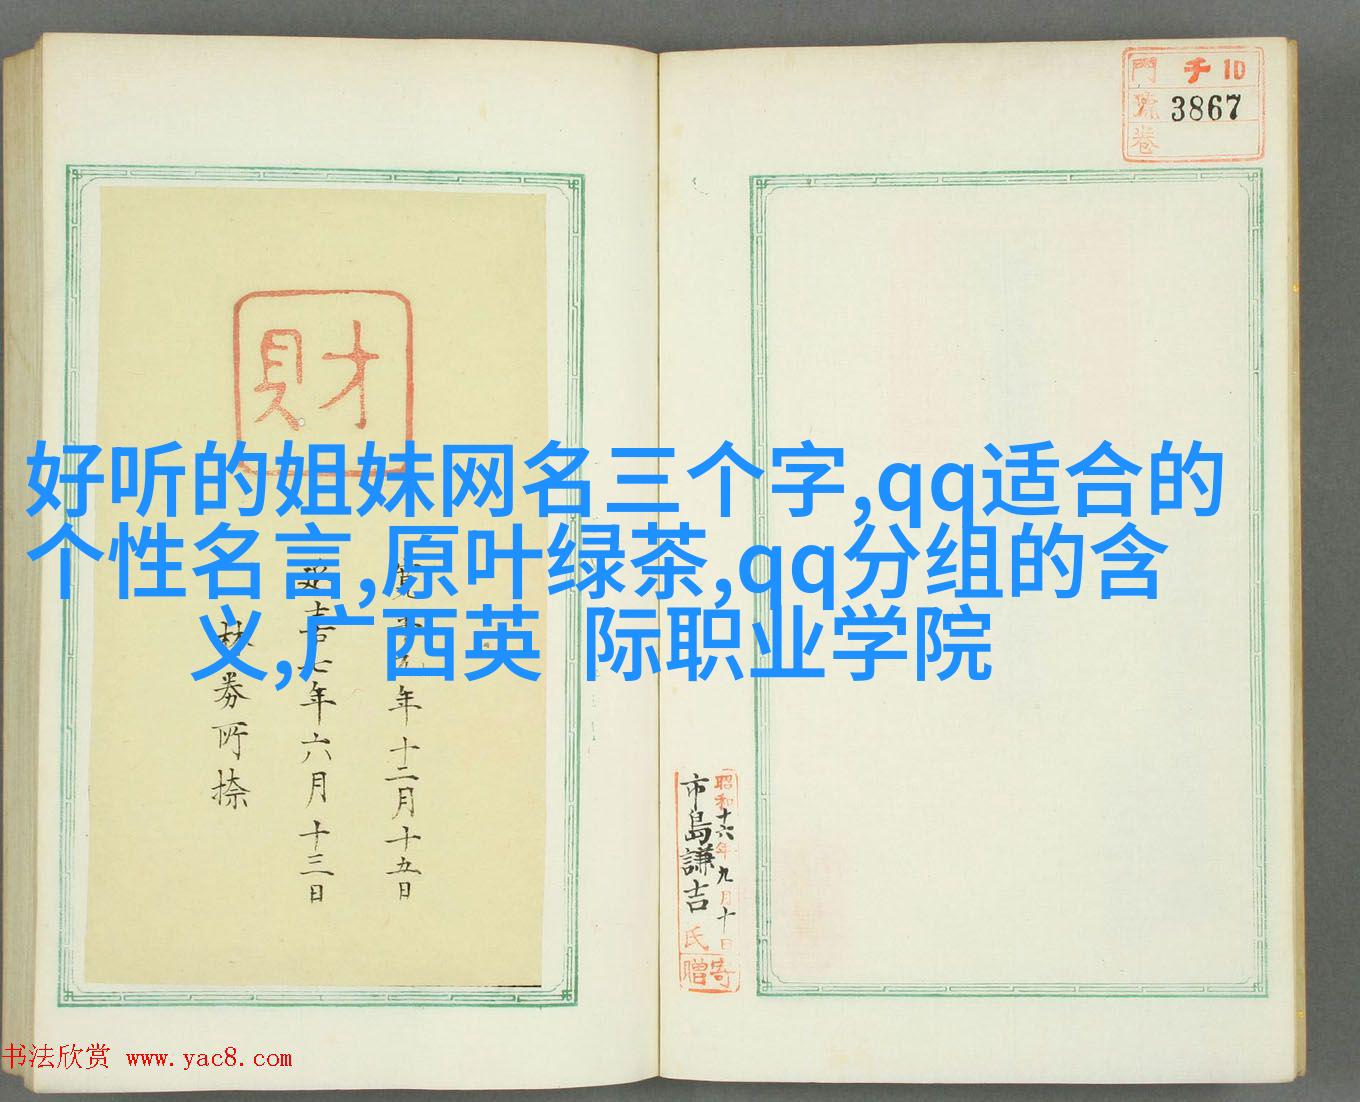 門 千 10
號 3867
卷
財
好听的姐妹网名三个字,qq适合的
个性名言,原叶绿茶,qq分组的含
义,广西英 际职业学院
年十二月十五日
七年六月十三日
券所捺
昭和十六年九月十日
市島謙吉氏
寄贈
书法欣赏 www.yac8.com